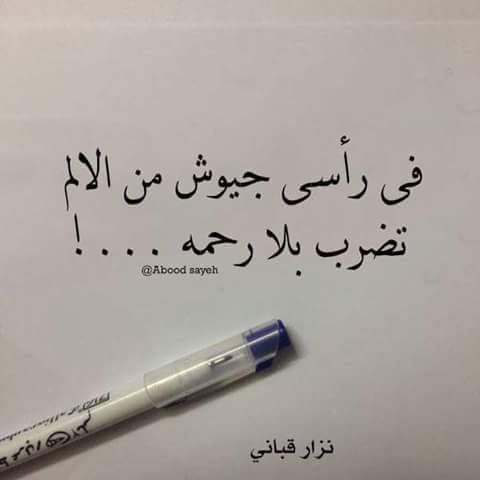 فى رأسى جيوش من الالم
تضرب بلا رحمه ....!
@Abood sayeh
نزار قباني